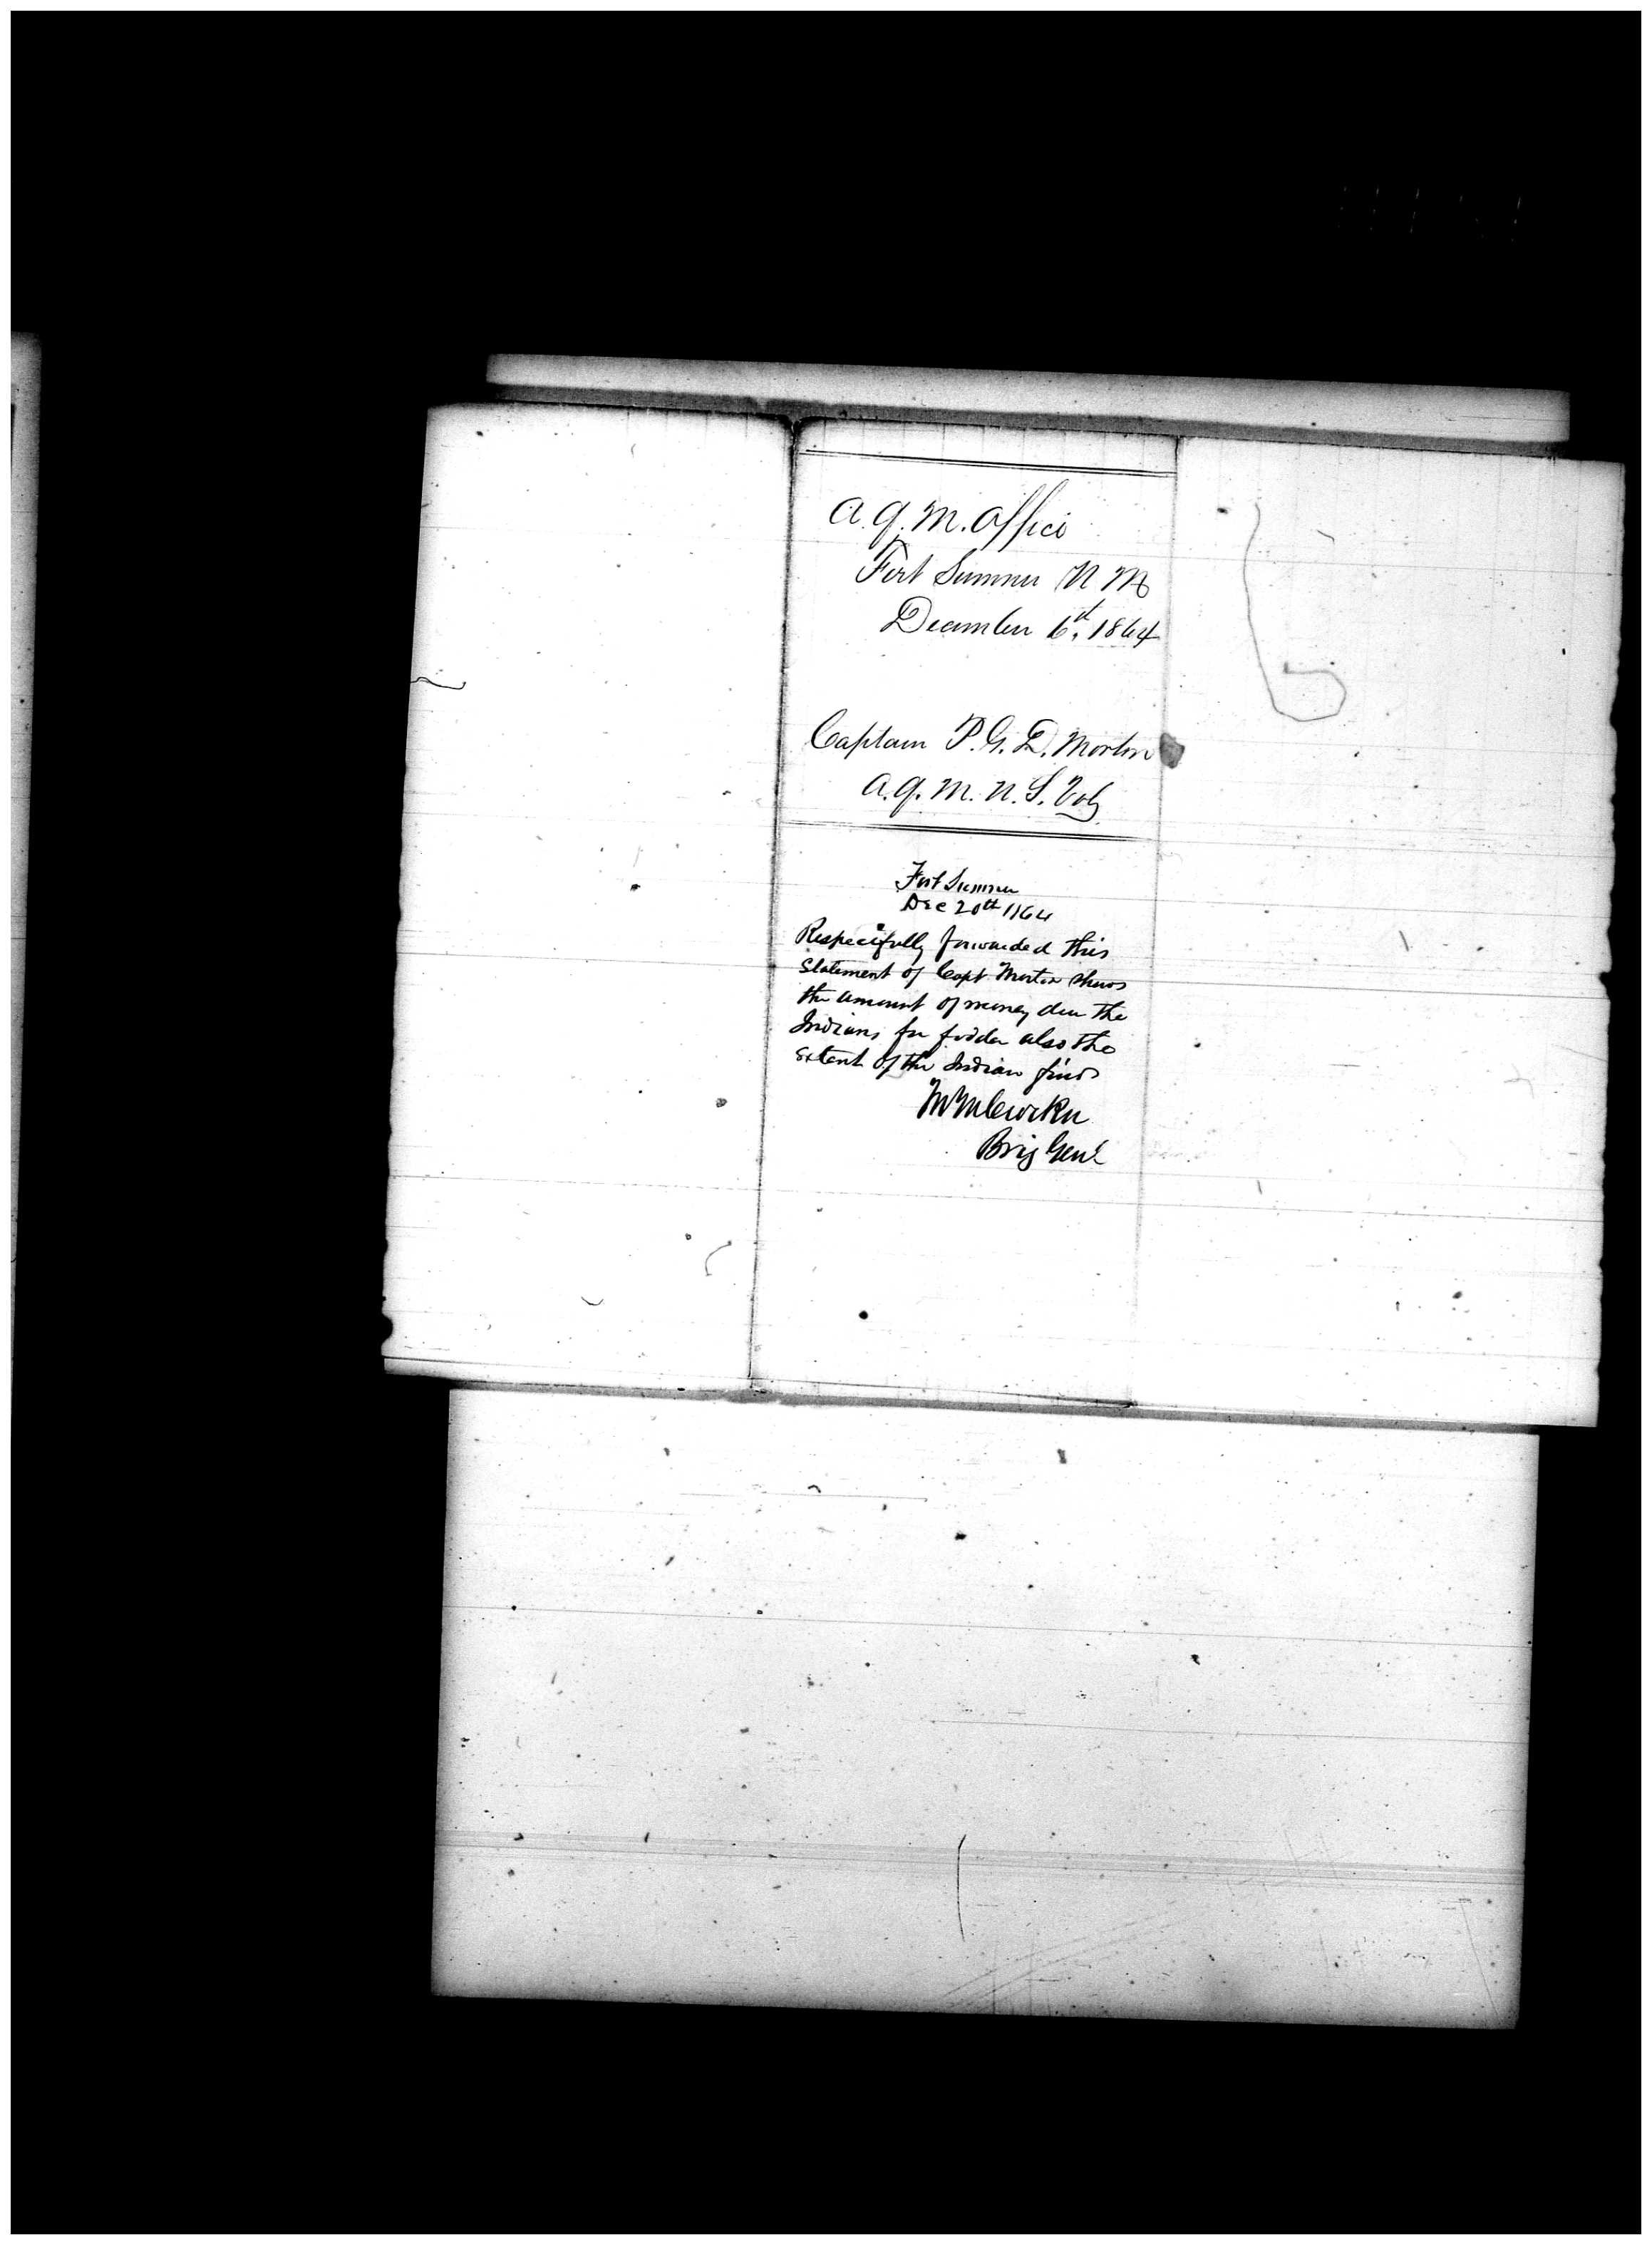 A. Q. M. Office
Fort Sumner N M
December 6th, 1864
Captain P. G. D. Morton
A. Q. M. U. S. Vols
Fort Sumner
Dec 20th 1864
Respectfully forwarded this
Statement of Capt Morton shows
the amount of money due the
Indians for fodder also the
extent of the Indian
Brig Genl